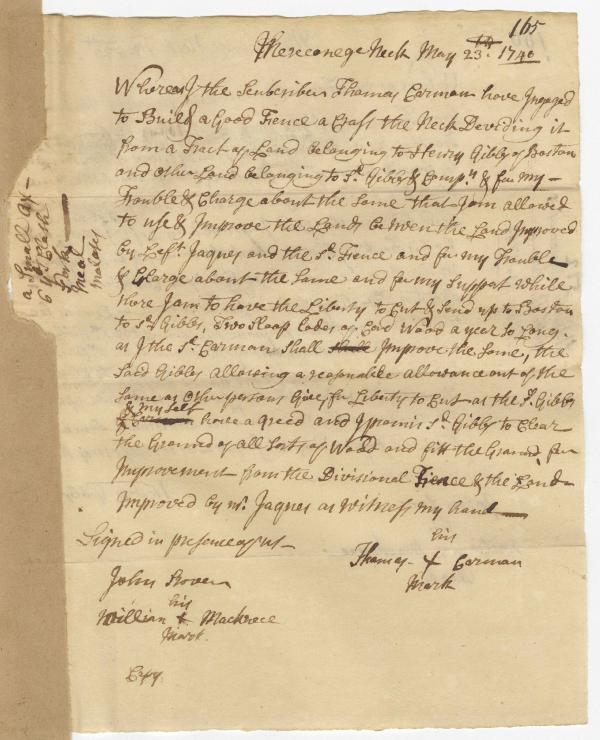 165
Mereconege Neck May 23th. 1740
Whereas I the Scubscriber Thomas Carman have Ingaged
to Build a Good Fence a Crass the Neck Deviding it
from a Tract of Land belonging to Henry Gibbs of Boston
and other Land belonging to Sd. Gibbs & Compy. & for my
Trouble & Charge about the Same that I am allowed
to use & Improve the Lands betwen the Land Improved
by Lefts. Jaques and the Sd. Fience and for my Trouble
& Charge about the Same and for my Support while
there I am to have the Liberty to Cut & Send up to Boston
to Sd. Gibbs, Two Sloop lodes of Cord Wood a year So Long
as I the Sd. Carman Shall Shall Improve the Same, the
Said Gibbs allowing a reasonable allowance out of the
Same as other persons Give, for Liberty to Cut as the Sd. Gibbs
& my Self
& Carman have a Greed and I promis Sd. Gibbs to Clear
the Ground of all Sorts of Wood and fitt the Ground for
Improvement from the Divisional Fience & the Land
Improved by mr. Jaques as Witness my hand
Signed in presence of us
his
Thomas X Carman
Mark
John
his
William X
Mark
Copy
a Small Ax
6
Pork
meal
malases